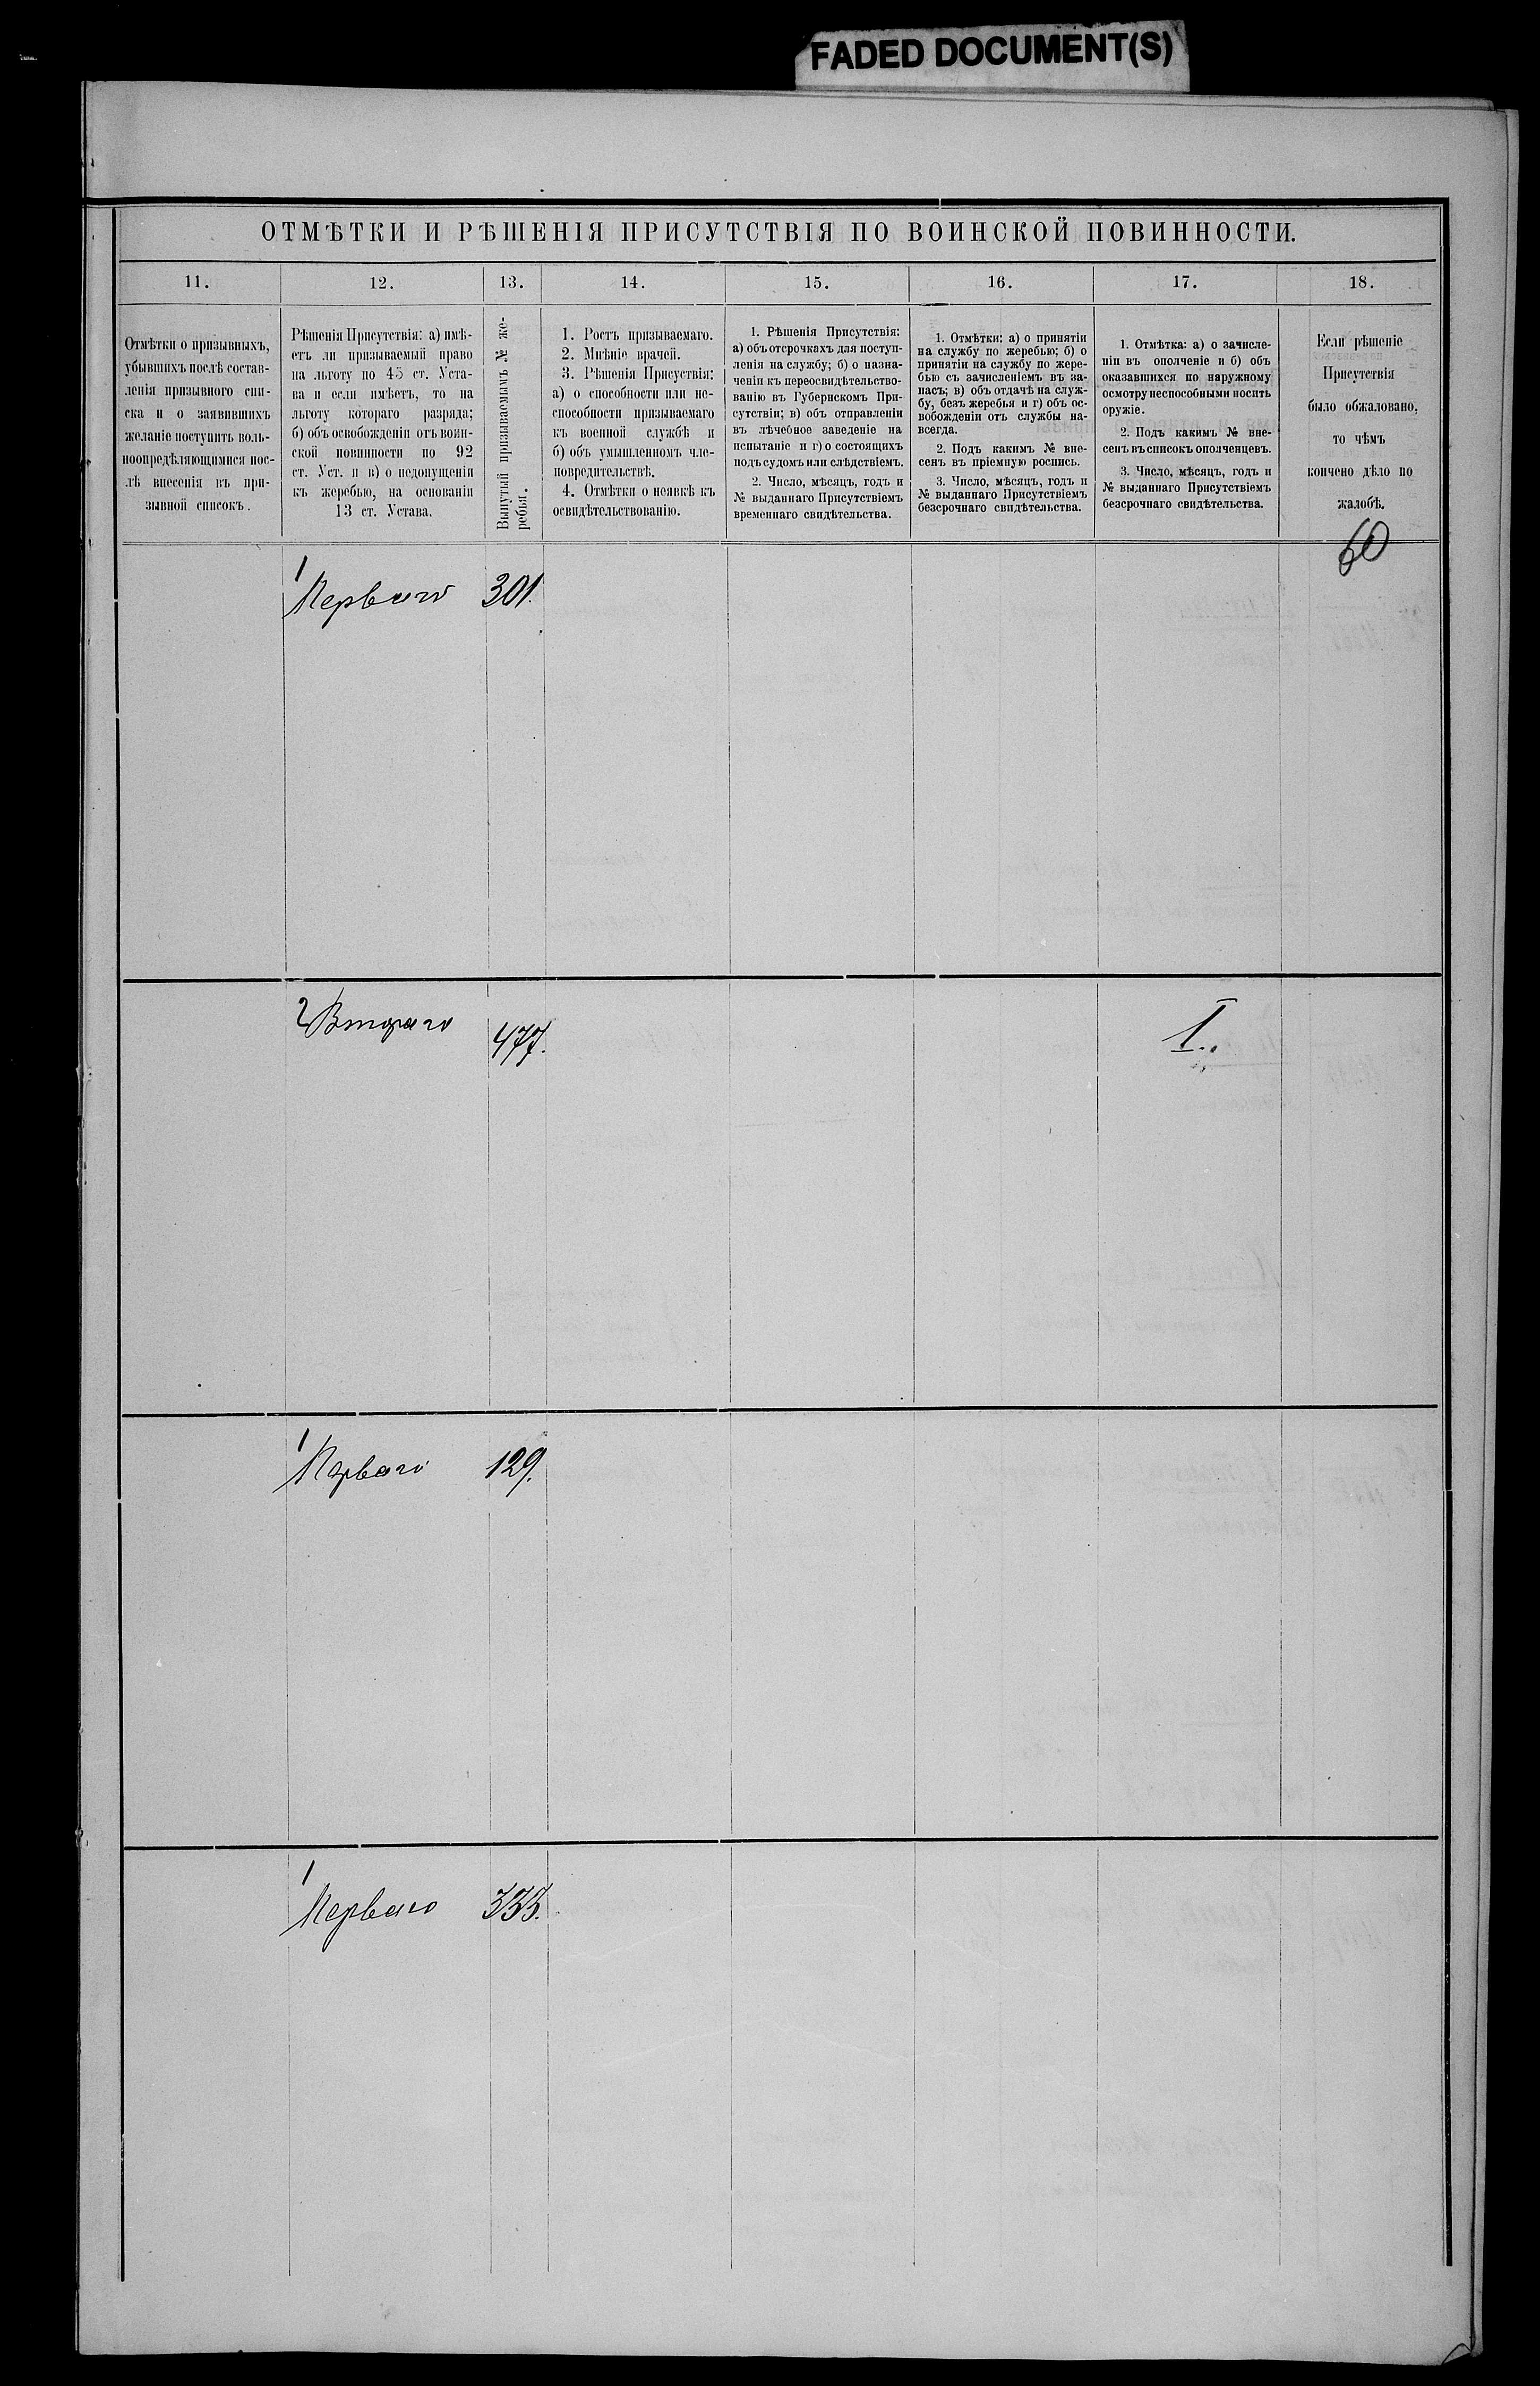 FADED DOCUMENT(S)
ОТМѢТКИ И РѢШЕНІЯ ПРИСУТСТВІЯ ПО ВОИНСКОЙ ПОВИННОСТИ.
11.
12.
13.
14.
15.
16.
17.
18.
Отмѣтки о призывныхъ,
убывшихъ послѣ состав-
ленія призывного спи-
ска и о заявившихъ
желаніе поступить воль-
ноопредѣляющимися пос-
лѣ внесенія въ при-
зывной списокъ.
Рѣшенія Присутствія: а) имѣ-
етъ ли призываемый право
на льготу по 45 ст. Уста-
ва и если имѣетъ, то на
льготу котораго разряда;
б) объ освобожденіи отъ воин-
ской повинности по 92
ст. Уст. и в) о недопущеніи
къ жеребью, на основаніи
13 ст. Устава.
Вынутый призываемымъ № же-
ребья.
1. Ростъ призываемаго.
2. Мнѣніе врачей.
3. Рѣшенія Присуствія:
а) о способности или не-
способности призываемаго
къ военной службѣ и
б) объ умышленномъ чле-
новредительствѣ.
4. Отмѣтки о неявкѣ къ
освидѣтельствованію.
1. Рѣшенія Присутствія:
а) объ отсрочкахъ для поступ-
ленія на службу; б) о назна-
ченіи къ переосвидѣтельство-
ванію въ Губернскомъ При-
сутствіи; в) объ отправленіи
въ лѣчебное заведеніе на
испытаніе и г) о состоящихъ
подъ судомъ или слѣдствіемъ.
2. Число, мѣсяцъ, годъ и
№ выданнаго Присутствіемъ
временнаго свидѣтельства.
1. Отмѣтки: а) о принятіи
на службу по жеребью; б) о
принятіи на службу по жере-
бью съ зачисленіемъ въ за-
пасъ; в) объ отдачѣ на служ-
бу, безъ жеребья и г) объ ос-
вобожденіи отъ службы на-
всегда.
2. Подъ какимъ № вне-
сенъ въ пріемную роспись.
3. Число, мѣсяцъ, годъ и
№ выданнаго Присутствіемъ
безсрочнаго свидѣтельства.
1. Отмѣтка: а) о зачисле-
ніи въ ополченіе и б) объ
оказавшихся по наружному
осмотру неспособными носить
оружіе.
2. Подъ какимъ № вне-
сенъ въ списокъ ополченцевъ.
3. Число, мѣсяцъ, годъ и
№ выданнаго Присутствіемъ
безсрочнаго свидѣтельства.
Если рѣшеніе
Присутствія
было обжаловано,
то чѣмъ
кончено дѣло по
жалобѣ.
60
1
Перваго 301.
2
Втораго 477. I.
1
Перваго 129.
1
Перваго 333.